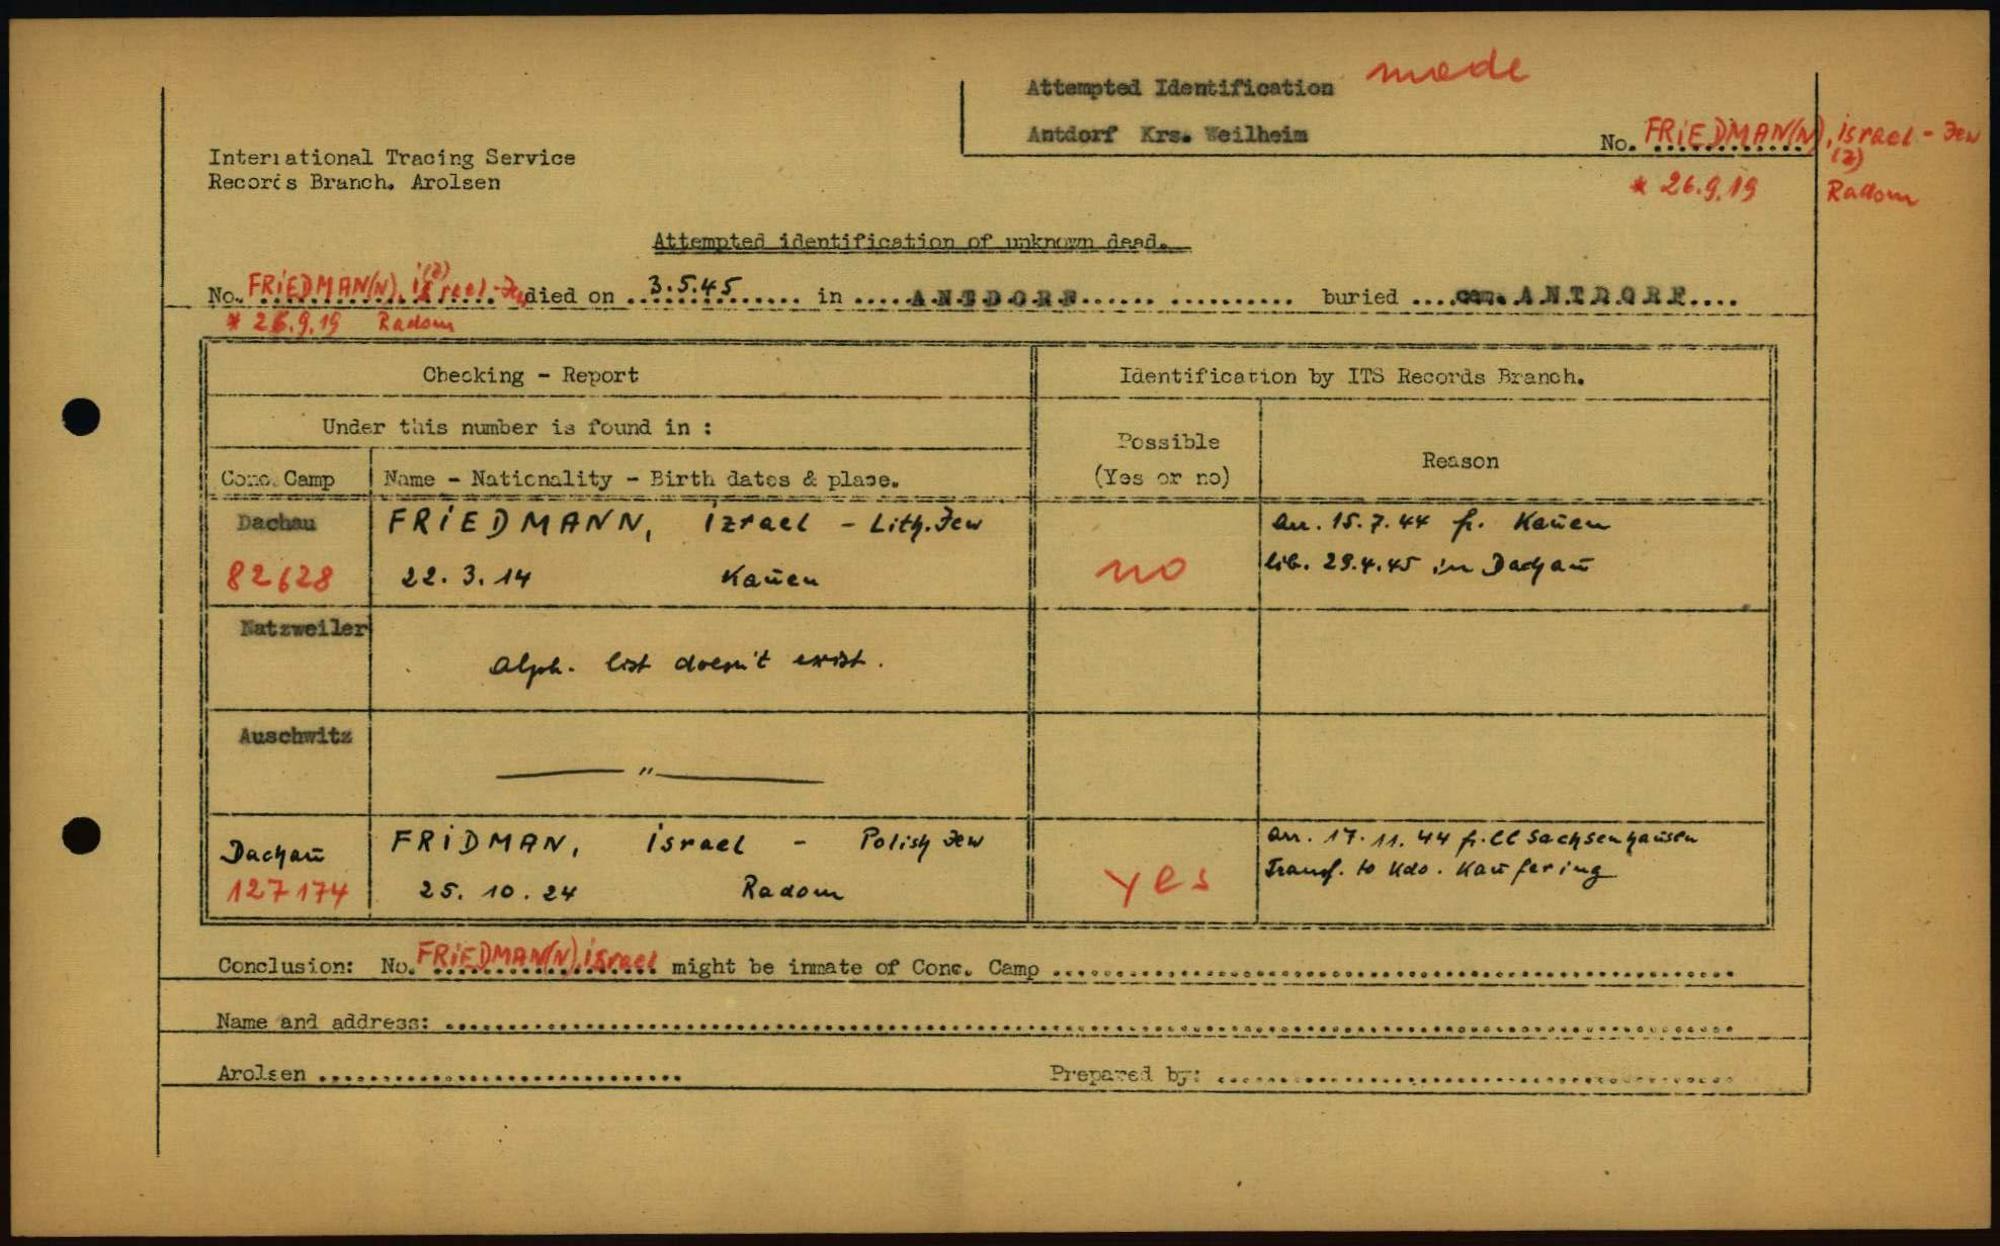 Attempted Identification made
Antdorf Krs. Weilheim
No. FRIEDMAN(N), israel - Jew
(z)
* 26.9.19 Radom
International Tracing Service
Records Branch. Arolsen
Attempted identification of unknown dead.
(z)
No. FRIEDMAN(N), israel - Jew died on 3.5.45 in ANTDORF buried cem. ANTDORF
* 26.9.19 Radom
Checking - Report
Identification by ITS Records Branch.
Under this number is found in :
Possible
(Yes or no)
Reason
Conc. Camp
Name - Nationality - Birth dates & place.
Dachau
82628
FRIEDMANN, izrael - Lith. Jew
22. 3. 14 Kauen
no
arr. 15.7.44 fr. Kauen
lib. 29.4.45 in Dachau
Natzweiler
alph. list doesn't exist.
Auschwitz
— " —
Dachau
127174
FRIDMAN, israel - Polish Jew
25. 10. 24 Radom
yes
arr. 17.11.44 fr. CC Sachsenhausen
Transf. to Kdo. Kaufering
Conclusion: No. FRIEDMAN(N), israel might be inmate of Conc. Camp
Name and address:
Arolsen
Prepared by: